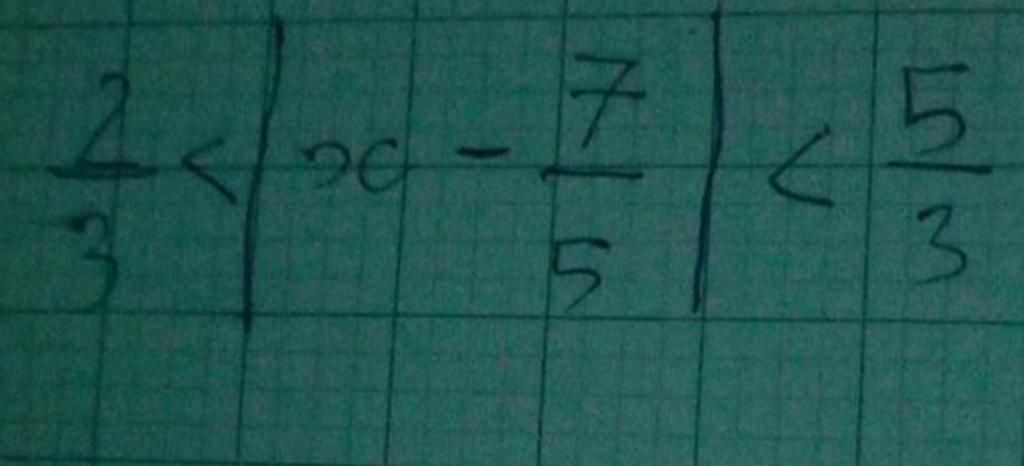 2/3 < | x - 7/5 | < 5/3